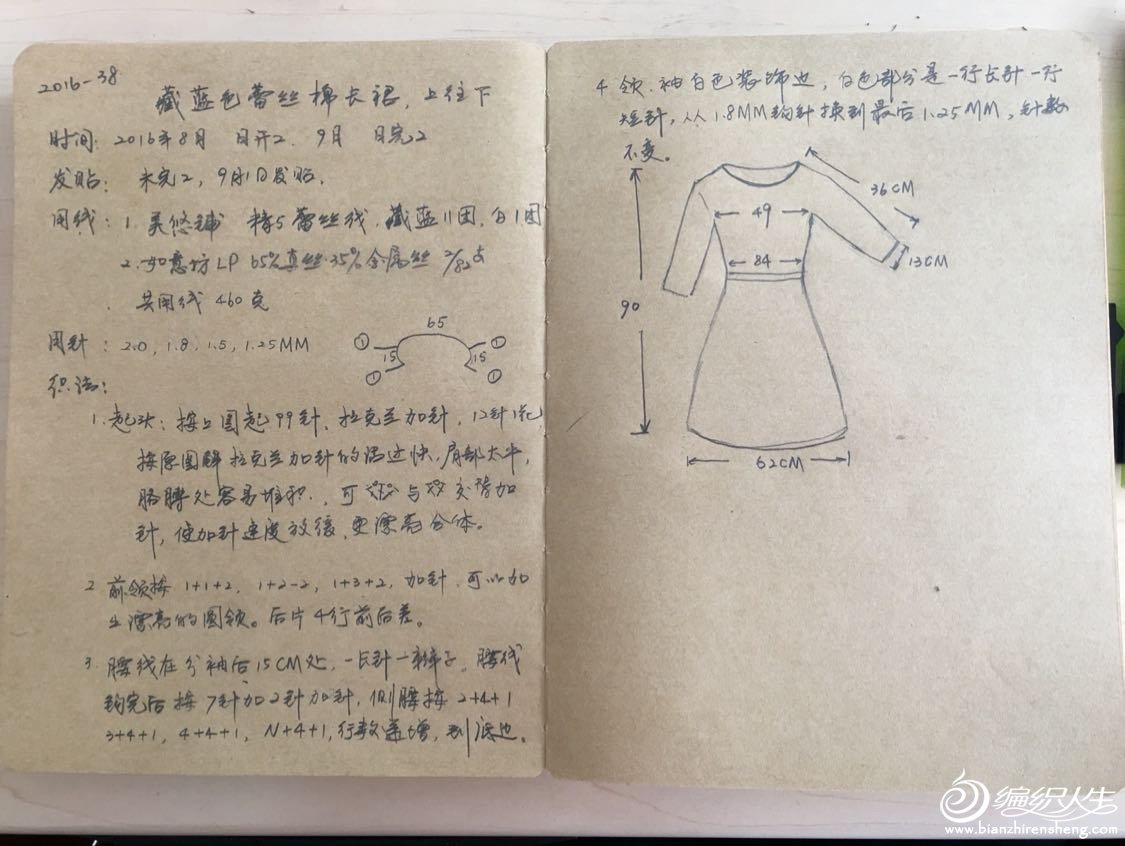 2016-38
藏蓝色蕾丝棉长裙,上往下
时间: 2016年8月 日开工. 9月 日完工
发贴: 未完工, 9月1日发贴.
用线: 1. 悠 5蕾丝线, 藏蓝11团, 白1团
2. 如意坊LP 65%真丝35%金属丝 2/82支
共用线 460克
用针: 2.0, 1.8, 1.5, 1.25MM
65
① 15 15 ①
① ①
织法:
1. 起头: 按上图起99针, 拉克兰加针, 12针1花
按原图解拉克兰加针的话过快, 肩部太平,
胳膊处容易堆积, 可 与 交替加
针, 使加针速度放缓, 更漂亮合体。
2 前领按 1+1+2, 1+2-2, 1+3+2, 加针, 可以加
出漂亮的圆领。后片4行前后差。
3. 腰线在分袖后15CM处, 一长针一辫子. 腰线
钩完后按7针加2针加针, 侧腰按 2+4+1
3+4+1, 4+4+1, N+4+1, 行数递增, 到底边.
4. 领、袖白色装饰边, 白色部分是一行长针一行
短针, 从1.8MM钩针换到最后1.25MM, 针数
不变。
36CM
49
13CM
84
90
62CM
编织人生
www.bianzhirensheng.com